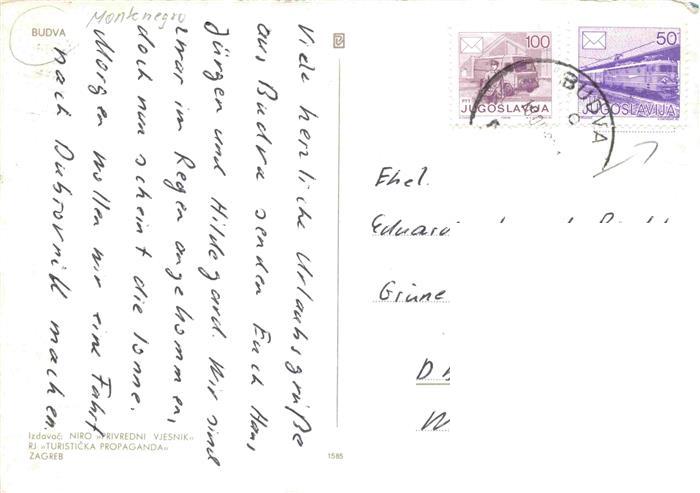 Montenegro
BUDVA
Viele herzliche Urlaubsgrüße
aus Budva senden Euch Hans,
Jürgen und Hildegard. Wir sind
zwar im Regen angekommen,
doch nun scheint die Sonne.
Morgen wollen wir eine Fahrt
nach Dubrovnik machen.
100
PTT
JUGOSLAVIJA
50
JUGOSLAVIJA
BUDVA
Ehel.
Grüne
D
Izdavač: NIRO »PRIVREDNI VJESNIK«
RJ »TURISTIČKA PROPAGANDA»
ZAGREB
1585